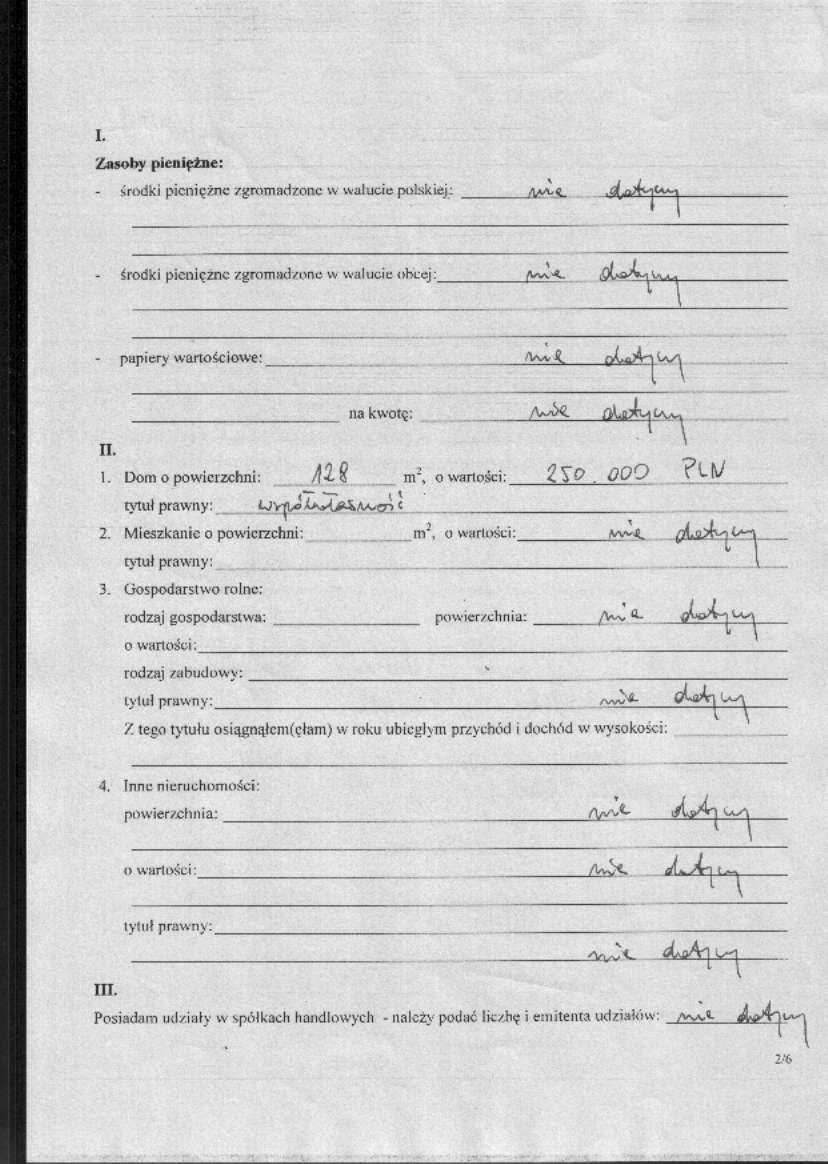 I.
Zasoby pieniężne:
- środki pieniężne zgromadzone w walucie polskiej: nie dotyczy
- środki pieniężne zgromadzone w walucie obcej: nie dotyczy
- papiery wartościowe: nie dotyczy
na kwotę: nie dotyczy
II.
1. Dom o powierzchni: 128 m², o wartości: 250.000 PLN
tytuł prawny: współwłasność
2. Mieszkanie o powierzchni: m², o wartości: nie dotyczy
tytuł prawny:
3. Gospodarstwo rolne:
rodzaj gospodarstwa: powierzchnia: nie dotyczy
o wartości:
rodzaj zabudowy:
tytuł prawny: nie dotyczy
Z tego tytułu osiągnąłem(ęłam) w roku ubiegłym przychód i dochód w wysokości:
4. Inne nieruchomości:
powierzchnia: nie dotyczy
o wartości: nie dotyczy
tytuł prawny:
nie dotyczy
III.
Posiadam udziały w spółkach handlowych - należy podać liczbę i emitenta udziałów: nie dotyczy
2/6